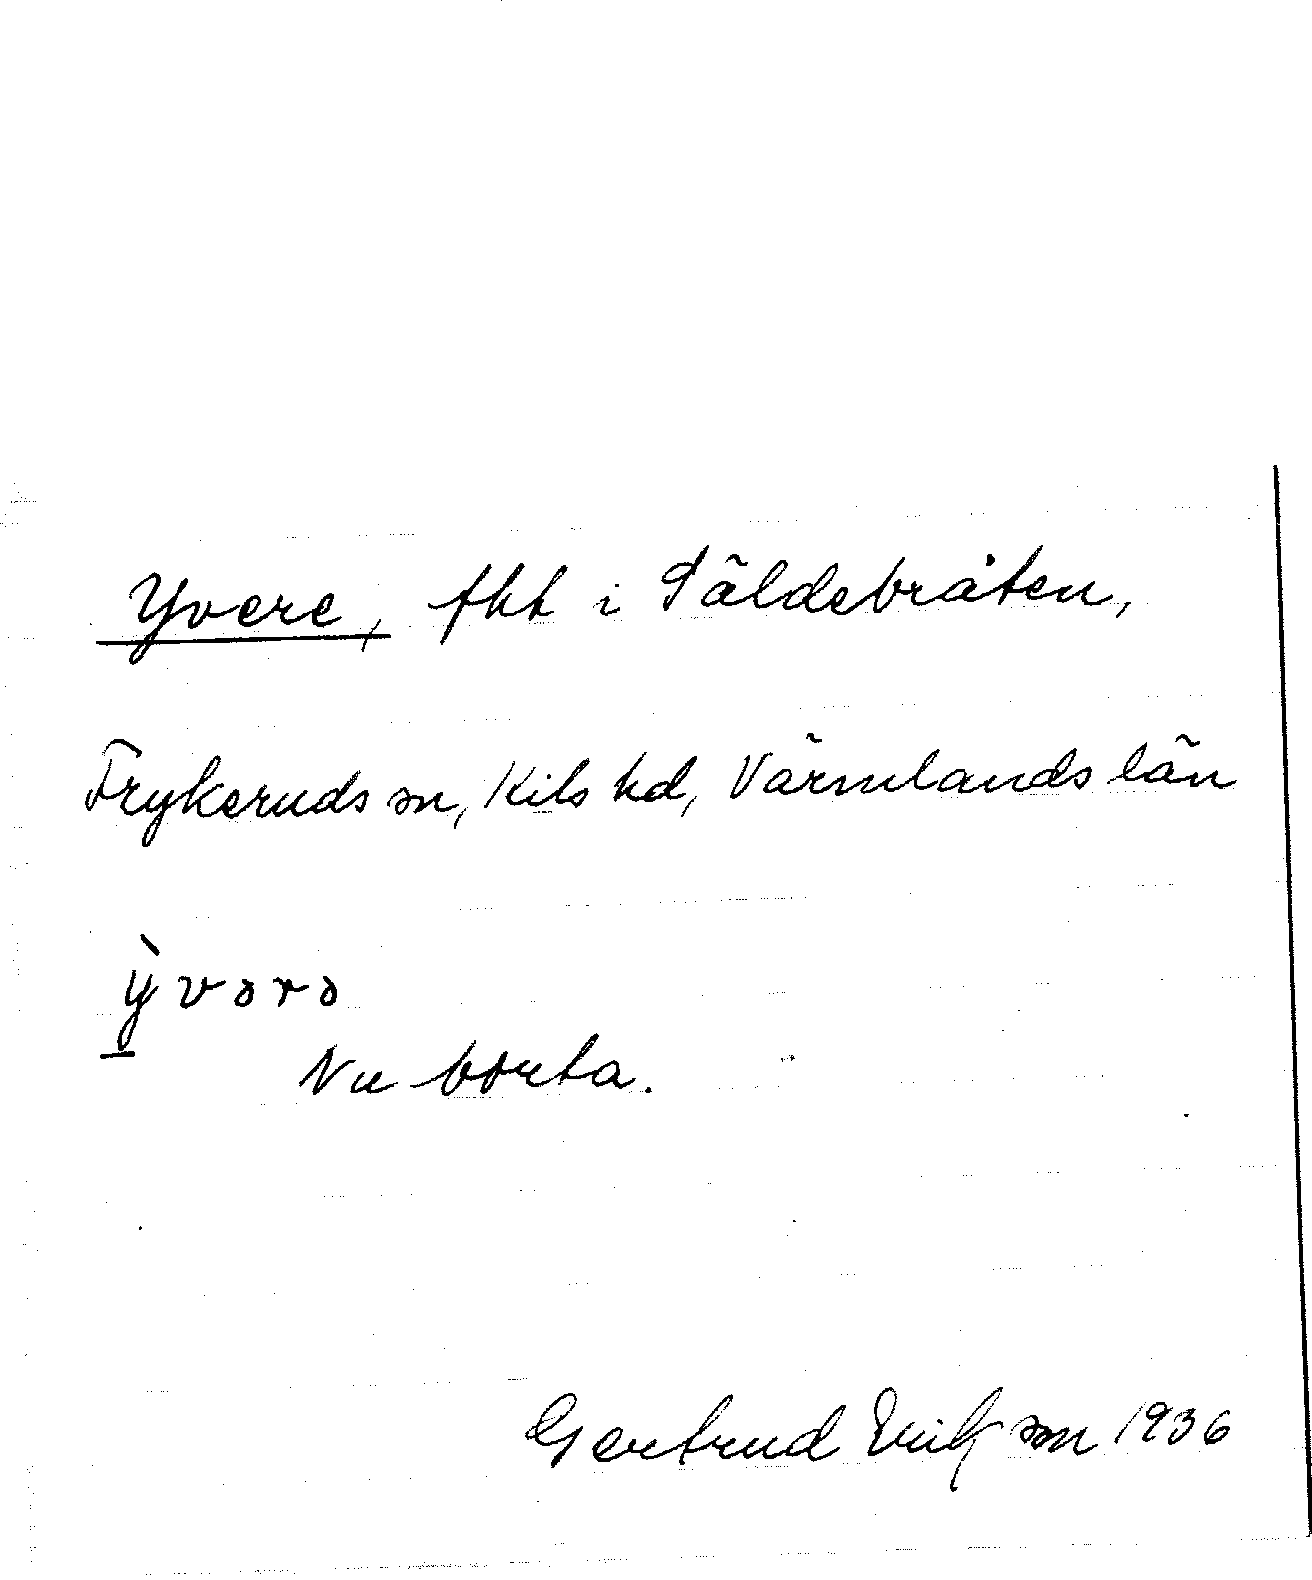 Yvere, fht i Säldebråten,
Frykeruds sn, Kils hd, Värmlands län
ỳvərə
Nu borta.
Gertrud Erikson 1936